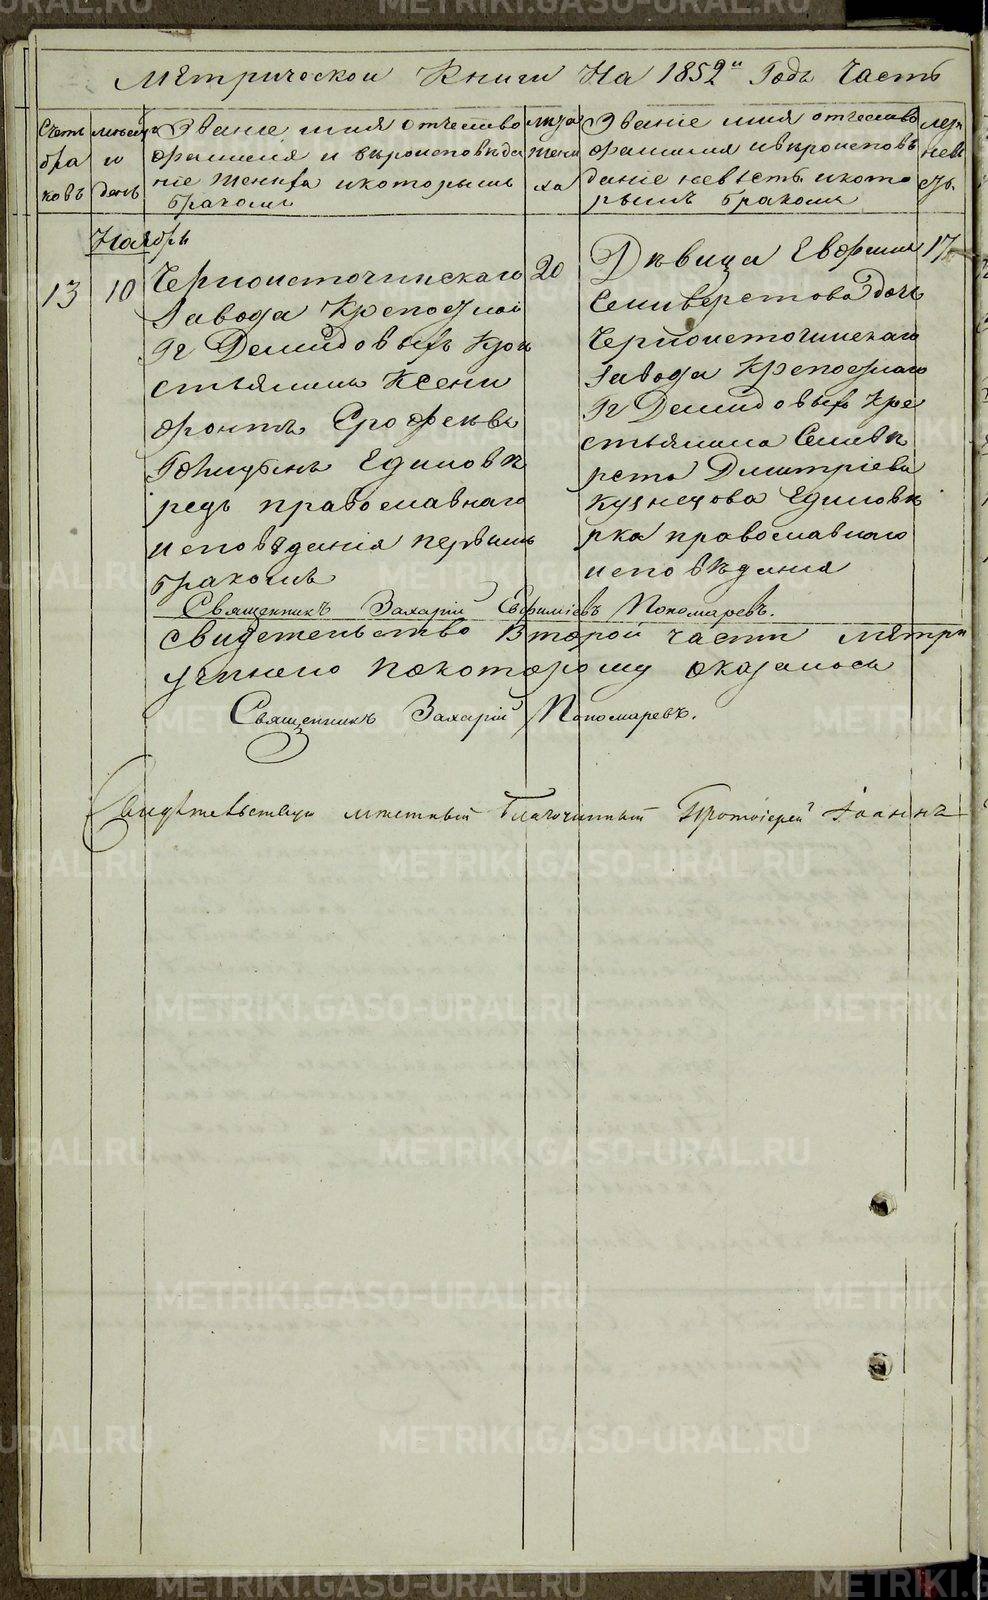 Метрической Книги На 1852й Годъ Часть
Счетъ браковъ
месяцъ и день
Званіе имя отчество фамилія и вѣроисповѣданіе жениха и которымъ бракомъ
лѣта жениха
Званіе имя отчество фамилия и вѣроисповѣданіе невѣсты и которымъ бракомъ
лета невѣсты
Ноябрь
13
10
Черноисточинскаго
Завода Крепостной
Гг Демидовыхъ Кре
стьянинъ Ксено
фонтъ Ерофеевъ
Голицынъ Едиповѣ
рецъ православнаго
исповѣданія первымъ
бракомъ
20
Дѣвица Евфимия
Селиверстова дочь
Черноисточинскаго
Завода Крепостнаго
Гг Демидовыхъ Кре
стьянина Селивѣ
рста Дмитріева
Кузнецова Единовѣ
рка православнаго
исповѣдания
17
Священникъ Захарій Евфиміевъ Пономаревъ.
свидетельство второй части мѣтри
учинено по которому оказалось
Священникъ Захарій Пономаревъ.
Свидѣтельствовалъ мѣстный Благочинный Протоіерей Іоаннъ
METRIKI.GASO-URAL.RU